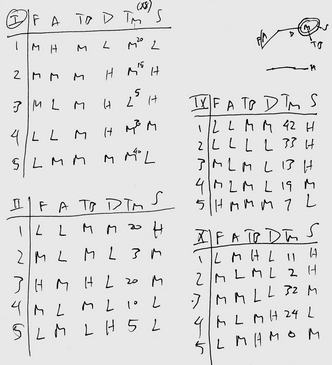 I F A TB D TM (XS) S
1 M H M L M20 L
2 M M M H M15 H
3 M L M H L5 H
4 L L M H M M
5 L M M M M40 L
II F A TB D TM S
1 L L M M 20 H
2 M L M L 3 M
3 H M H L 20 M
4 M L M L 10 L
5 L M L H 5 L
M S
D
TB
A
IV F A TB D TM S
1 L L M M 42 H
2 L L L L 33 H
3 M L M L 13 H
4 M L M L 19 M
5 H M M M 7 L
F A TB D TM S
1 L M H L 11 H
2 M L M L 2 H
3 M M L L 32 M
4 M L M H 24 L
5 L M H M 0 M